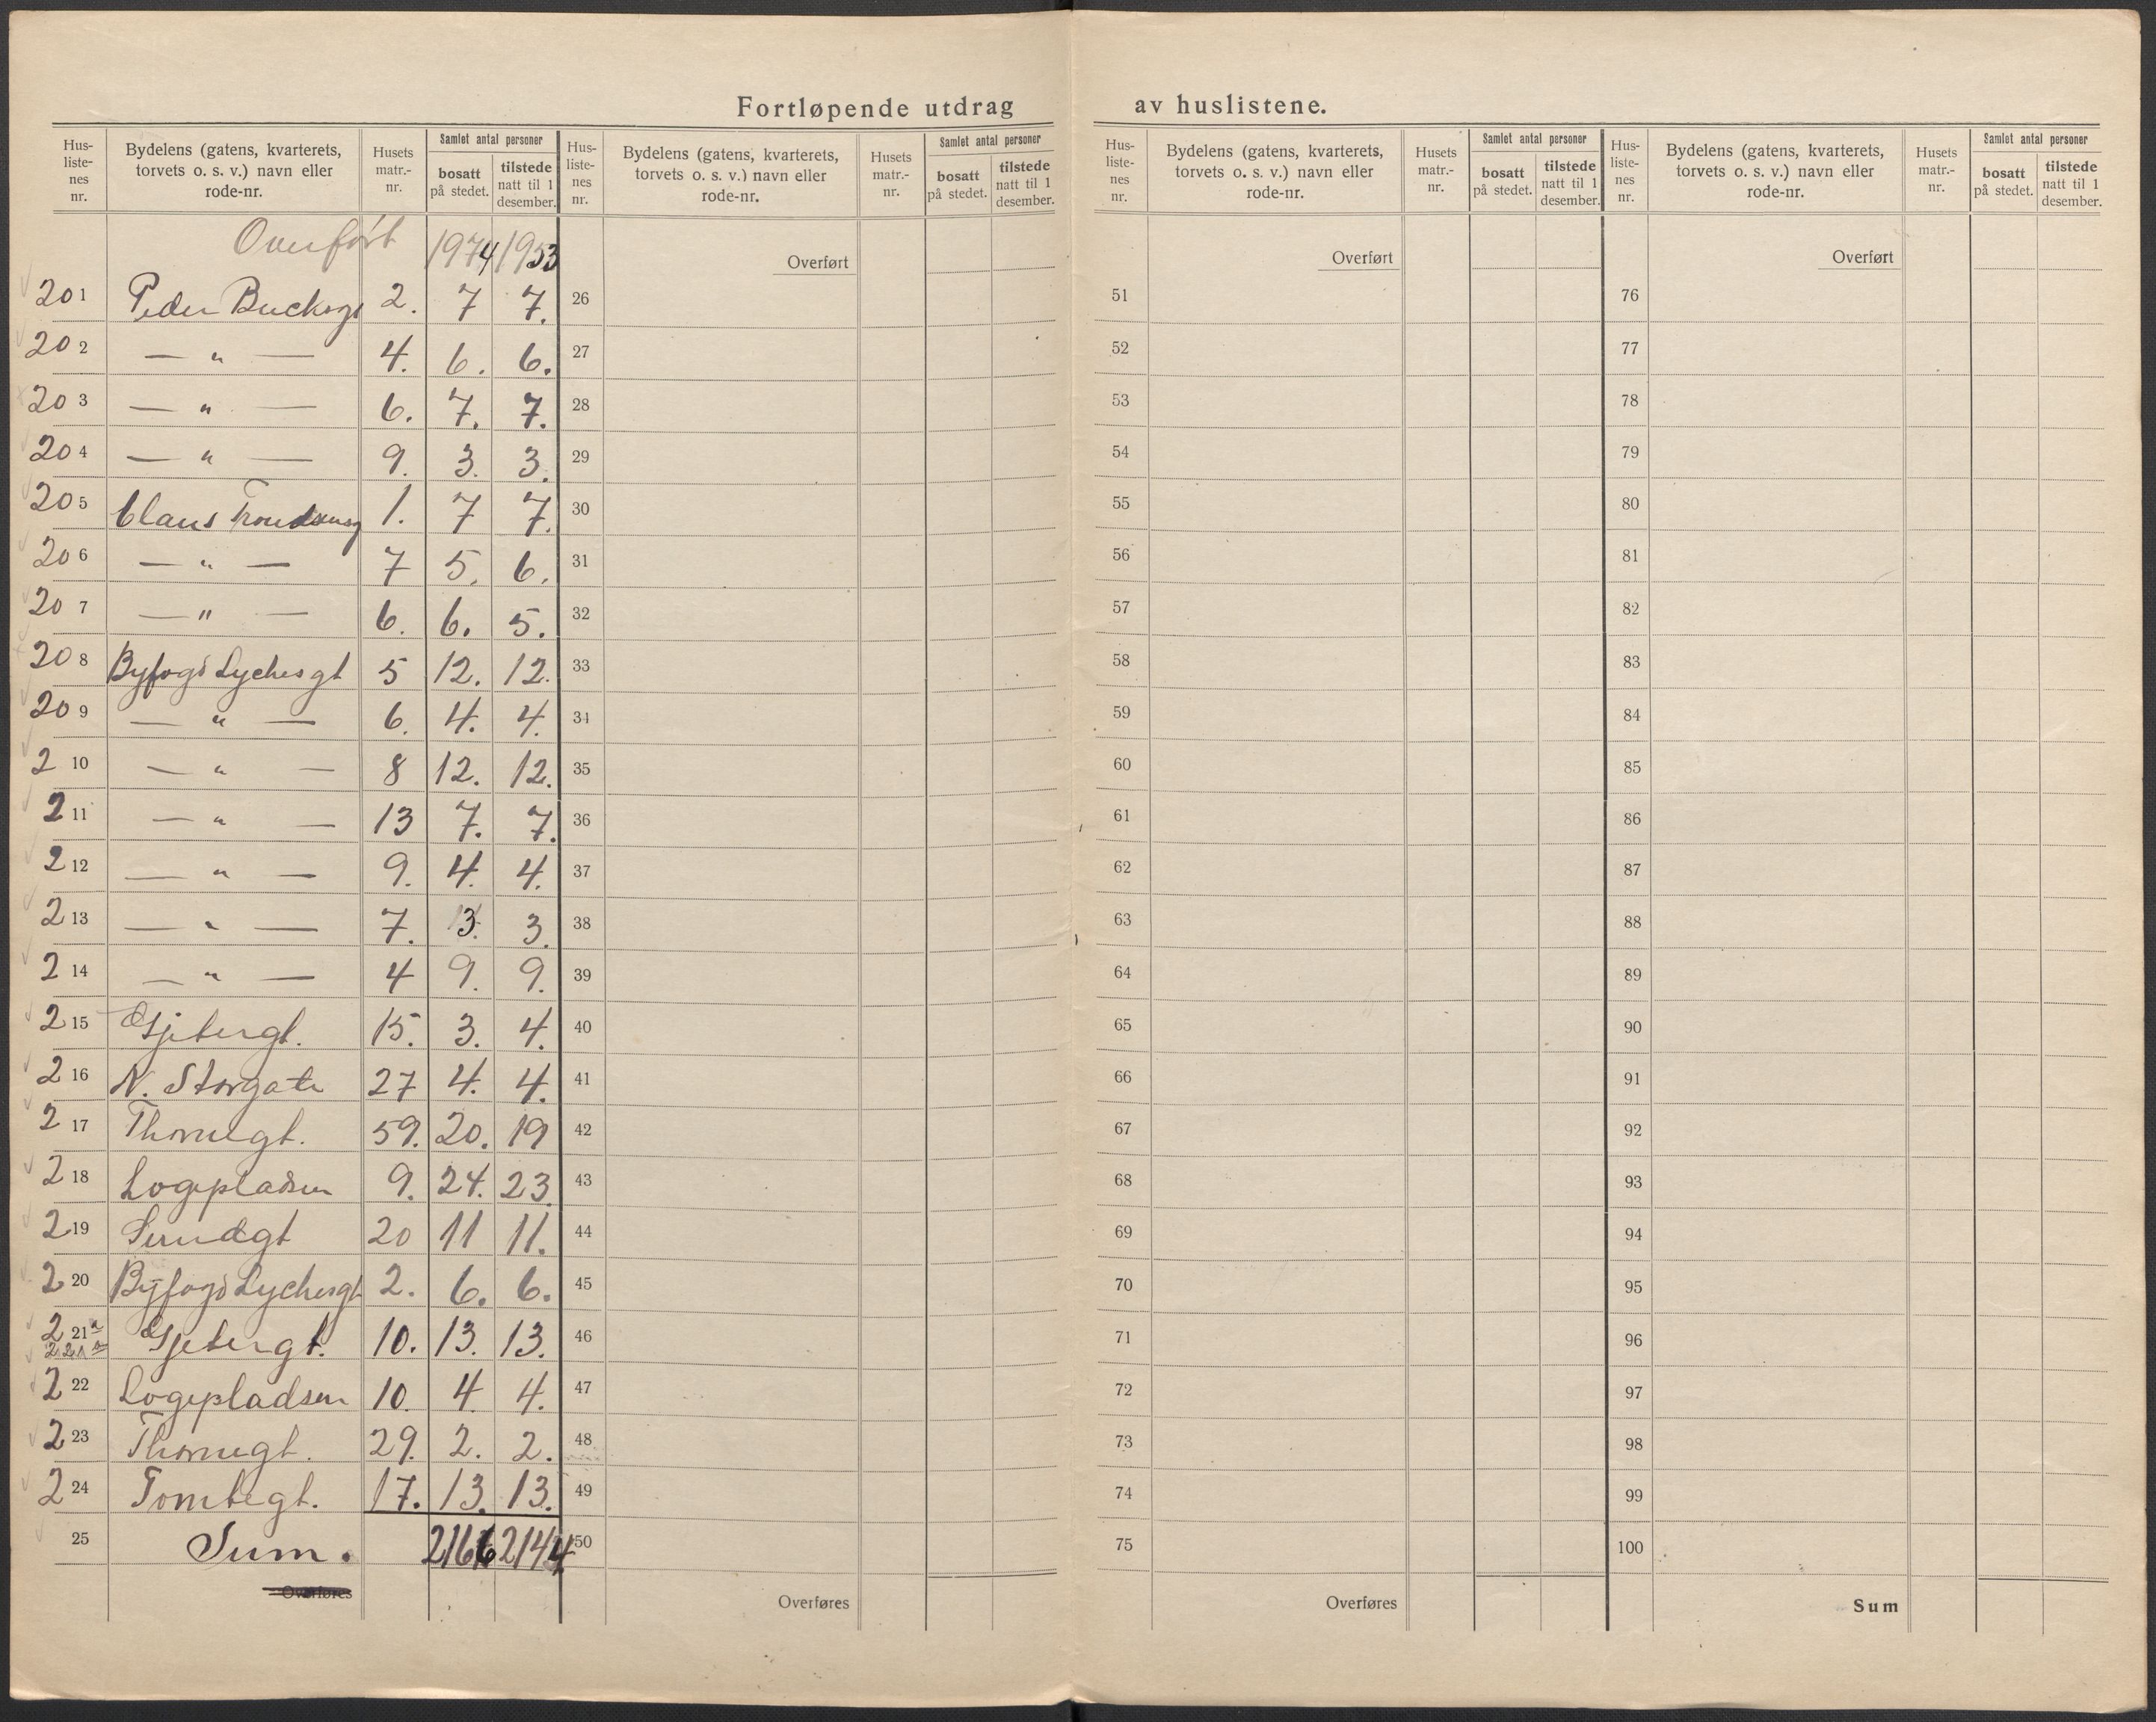 Fortløpende utdrag av huslistene.
Hus-listenes nr. | Bydelens (gatens, kvarterets, torvets o. s. v.) navn eller rode-nr. | Husets matr.-nr. | Samlet antal personer bosatt på stedet. | tilstede natt til 1 desember.
Overført 1974 1953
201 Peder Bucksgt 2. 7 7.
202 — " — 4. 6. 6.
203 — " — 6. 7. 7.
204 — " — 9. 3. 3.
205 Claus Trondsensg 1. 7 7.
206 — " — 7 5. 6.
207 — " — 6. 6. 5.
208 Byfogd Lychesgt 5 12. 12.
209 — " — 6. 4. 4.
210 — " — 8 12. 12.
211 — " — 13 7. 7.
212 — " — 9. 4. 4.
213 — " — 7. 3. 3.
214 — " — 4 9. 9.
215 Gjetergt. 15. 3. 4.
216 N. Storgate 27 4. 4.
217 Thornegt. 59. 20. 19
218 Logepladsen 9. 24. 23
219 Sundgt 20 11 11.
220 Byfogd Lychesgt 2. 6. 6.
221 a Gjetergt. 10. 13. 13.
221
222 Logepladsen 10. 4. 4.
223 Thornegt. 29. 2. 2.
224 Tombegt. 17. 13. 13.
25 Sum. 2166 2144
Overføres
Hus-listenes nr. | Bydelens (gatens, kvarterets, torvets o. s. v.) navn eller rode-nr. | Husets matr.-nr. | Samlet antal personer bosatt på stedet. | tilstede natt til 1 desember.
Overført
26
27
28
29
30
31
32
33
34
35
36
37
38
39
40
41
42
43
44
45
46
47
48
49
50
Overføres
Hus-listenes nr. | Bydelens (gatens, kvarterets, torvets o. s. v.) navn eller rode-nr. | Husets matr.-nr. | Samlet antal personer bosatt på stedet. | tilstede natt til 1 desember.
Overført
51
52
53
54
55
56
57
58
59
60
61
62
63
64
65
66
67
68
69
70
71
72
73
74
75
Overføres
Hus-listenes nr. | Bydelens (gatens, kvarterets, torvets o. s. v.) navn eller rode-nr. | Husets matr.-nr. | Samlet antal personer bosatt på stedet. | tilstede natt til 1 desember.
Overført
76
77
78
79
80
81
82
83
84
85
86
87
88
89
90
91
92
93
94
95
96
97
98
99
100
Sum